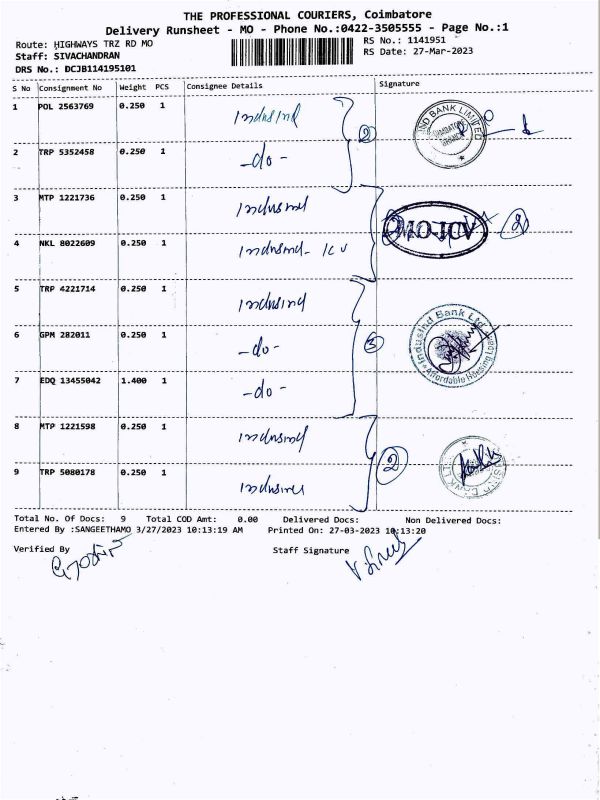 THE PROFESSIONAL COURIERS, Coimbatore
Delivery Runsheet - MO - Phone No.:0422-3505555 - Page No.:1
Route: HIGHWAYS TRZ RD MO
RS No.: 1141951
Staff: SIVACHANDRAN
RS Date: 27-Mar-2023
DRS No.: DCJB114195101
S No Consignment No Weight PCS Consignee Details Signature
1 POL 2563769 0.250 1 Indusind ② IND BANK LIMITED COIMBATORE BRANCH
2 TRP 5352458 0.250 1 -do-
3 MTP 1221736 0.250 1 Indusind
4 NKL 8022609 0.250 1 Indusind- ICV ② MO-ICV ②
5 TRP 4221714 0.250 1 Indusind
6 GPM 282011 0.250 1 -do- ③ IndusInd Bank Ltd Affordable Housing Loan
7 EDQ 13455042 1.400 1 -do-
8 MTP 1221598 0.250 1 Indusind
9 TRP 5080178 0.250 1 Indusind ②
Total No. Of Docs: 9 Total COD Amt: 0.00 Delivered Docs: Non Delivered Docs:
Entered By :SANGEETHAMO 3/27/2023 10:13:19 AM Printed On: 27-03-2023 10:13:20
Verified By Staff Signature